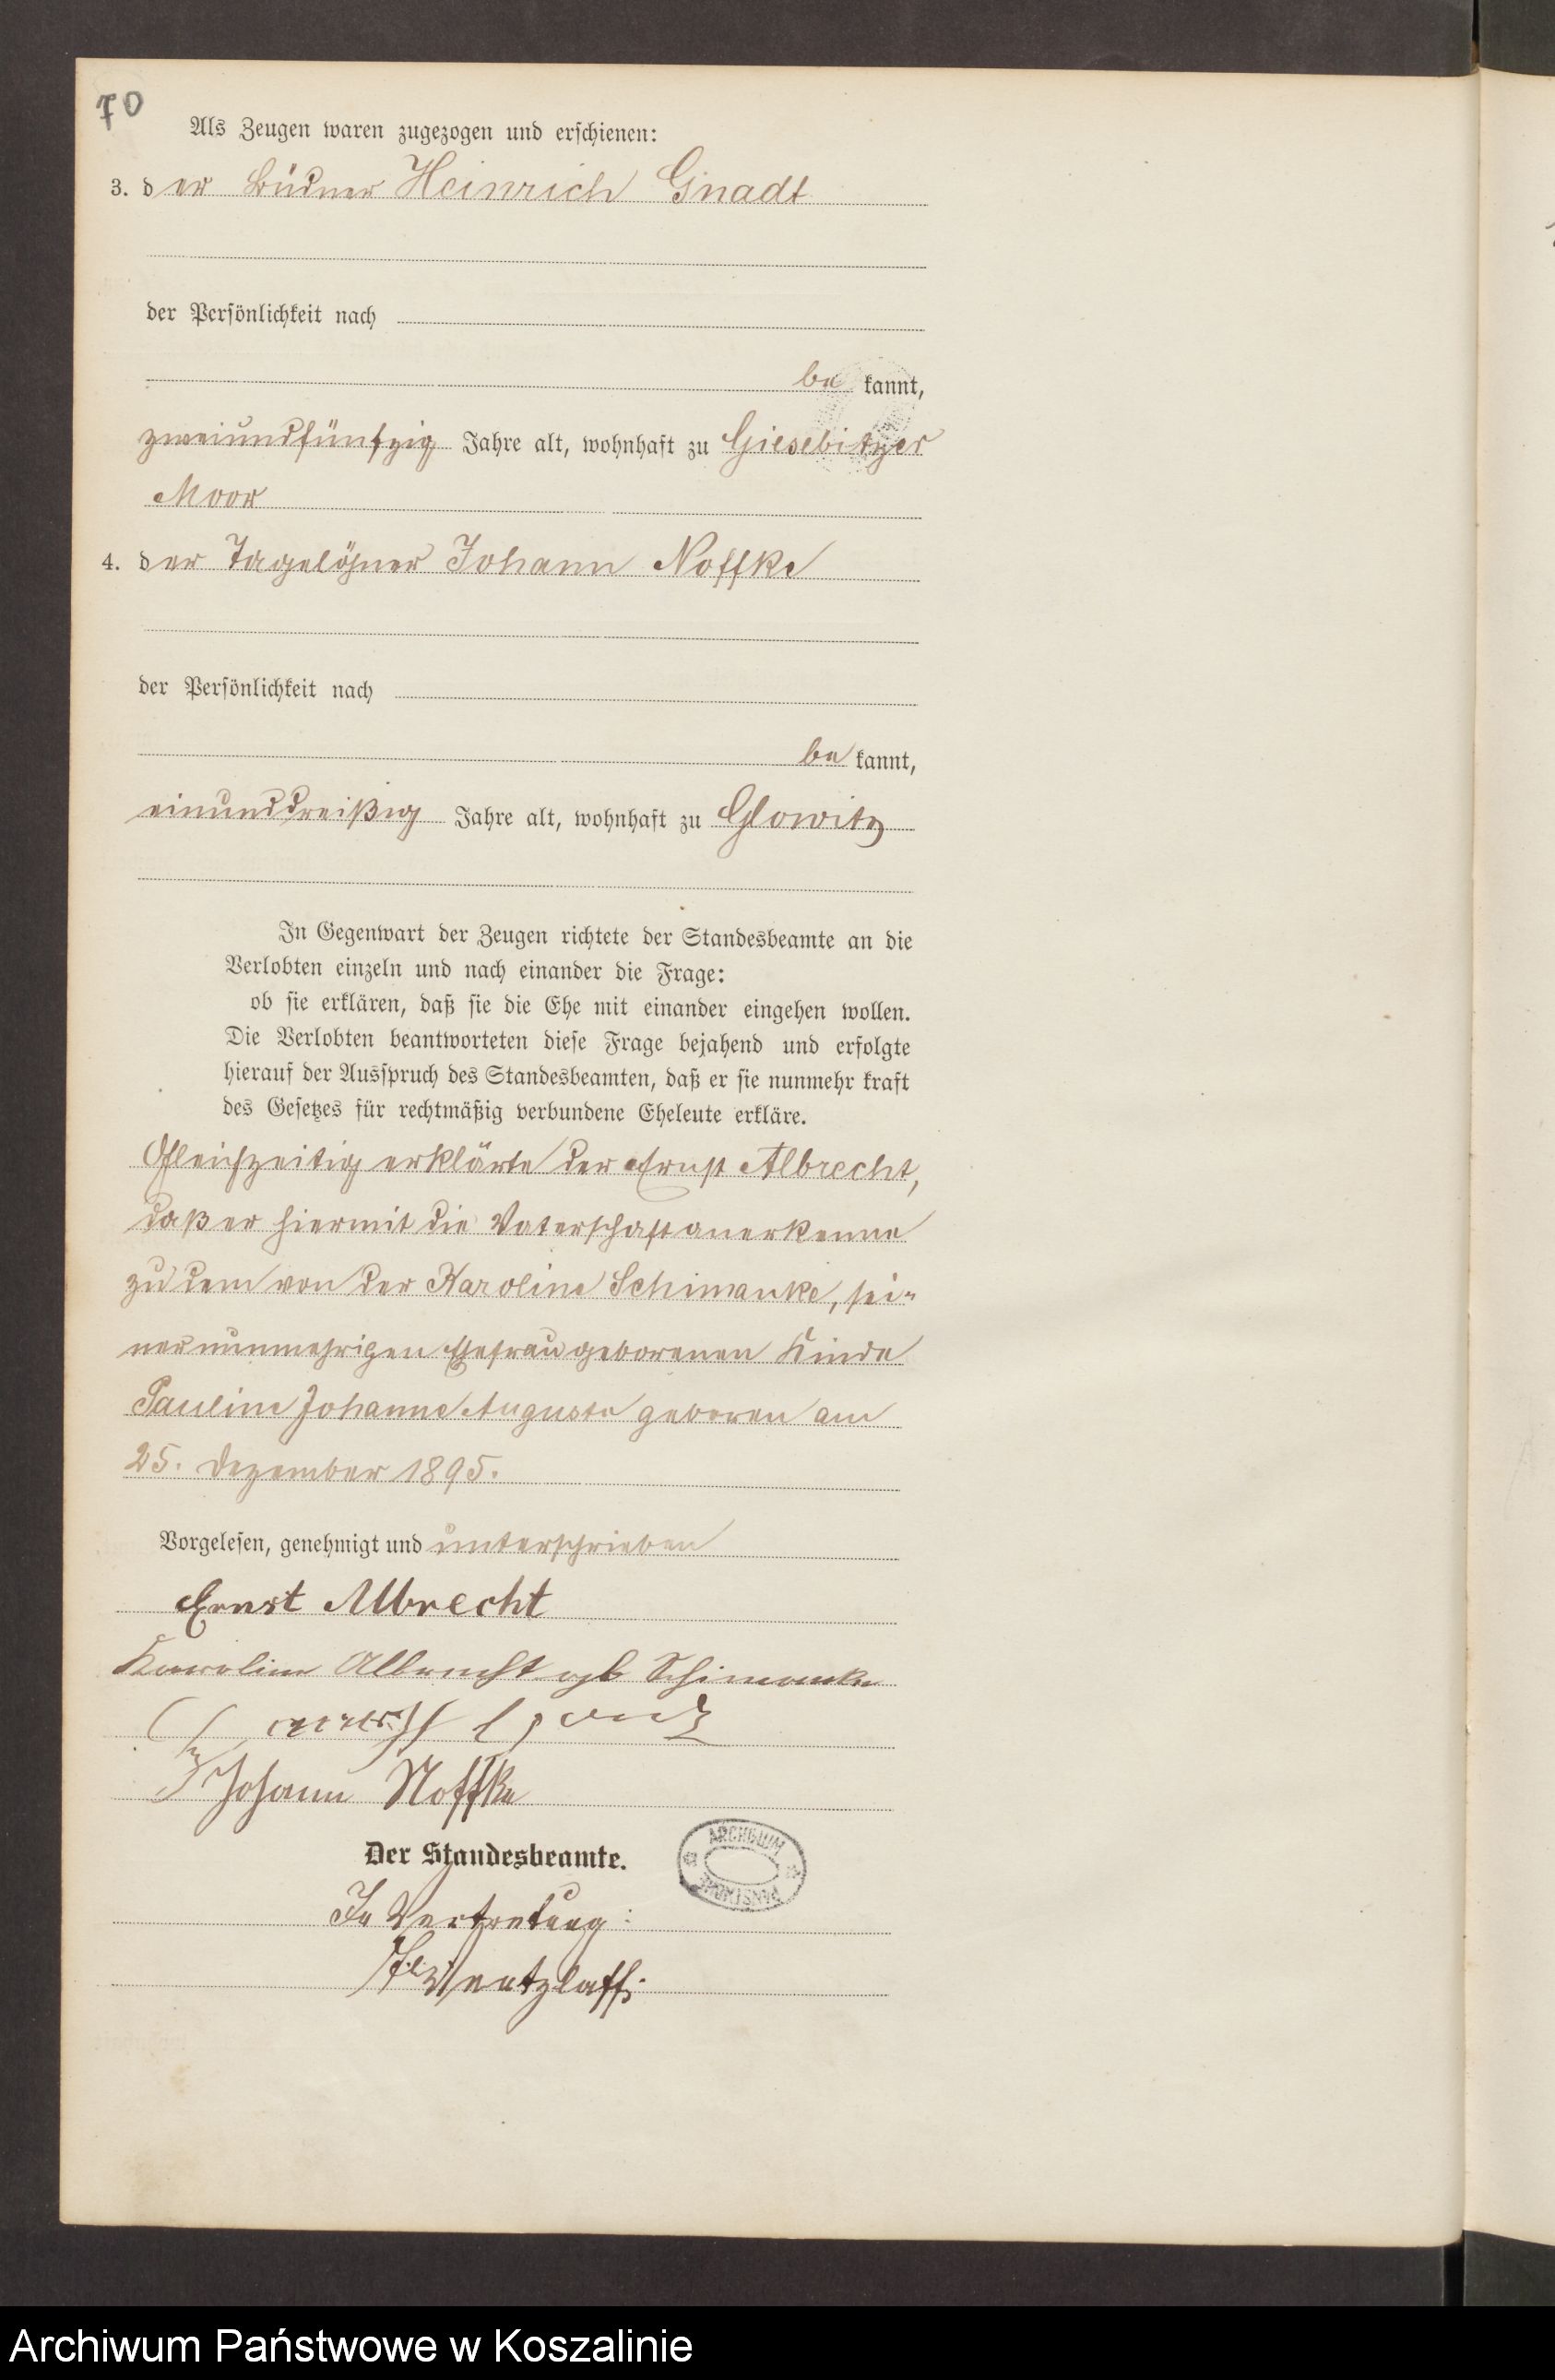 70
Als Zeugen waren zugezogen und erschienen:
3. der Büdner Heinrich Gnadt
der Persönlichkeit nach
be kannt,
zweiundfünfzig Jahre alt, wohnhaft zu Giesebitzer
Moor
4. der Tagelöhner Johann Noffke
der Persönlichkeit nach
be kannt,
einunddreißig Jahre alt, wohnhaft zu Glowitz
In Gegenwart der Zeugen richtete der Standesbeamte an die
Verlobten einzeln und nach einander die Frage:
ob sie erklären, daß sie die Ehe mit einander eingehen wollen.
Die Verlobten beantworteten diese Frage bejahend und erfolgte
hierauf der Ausspruch des Standesbeamten, daß er sie nunmehr kraft
des Gesetzes für rechtmäßig verbundene Eheleute erkläre.
Gleichzeitig erklärte der Ernst Albrecht,
daß er hiermit die Vaterschaft anerkenne
zu dem von der Karoline Schimanke, sei-
ner nunmehrigen Ehefrau geborenen Kinde
Pauline Johanne Auguste geboren am
25. Dezember 1895.
Vorgelesen, genehmigt und unterschrieben
Ernst Albrecht
Karoline Albrecht geb Schimanke
Johann Noffke
Der Standesbeamte.
In Vertretung:
Wentzlaff.
ARCHIWUM
Archiwum Państwowe w Koszalinie